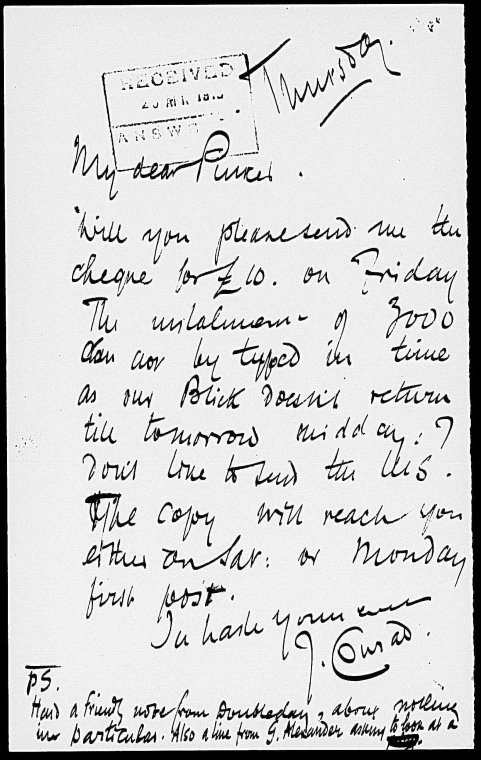 Thursday.
RECEIVED
ANSWE
My dear Pinker.
Will you please send me the
cheque for £10. on Friday
The instalment of 3000
can not by typed in time
as our Blick doesn't return
till tomorrow midday: I
Don't like to send the MS.
The copy will reach you
either on Sat: or Monday
first post.
In haste yours ever
J. Conrad.
PS.
Had a friendly note from Doubleday, about nothing
in particular. Also a line from G. Alexander asking to look at a